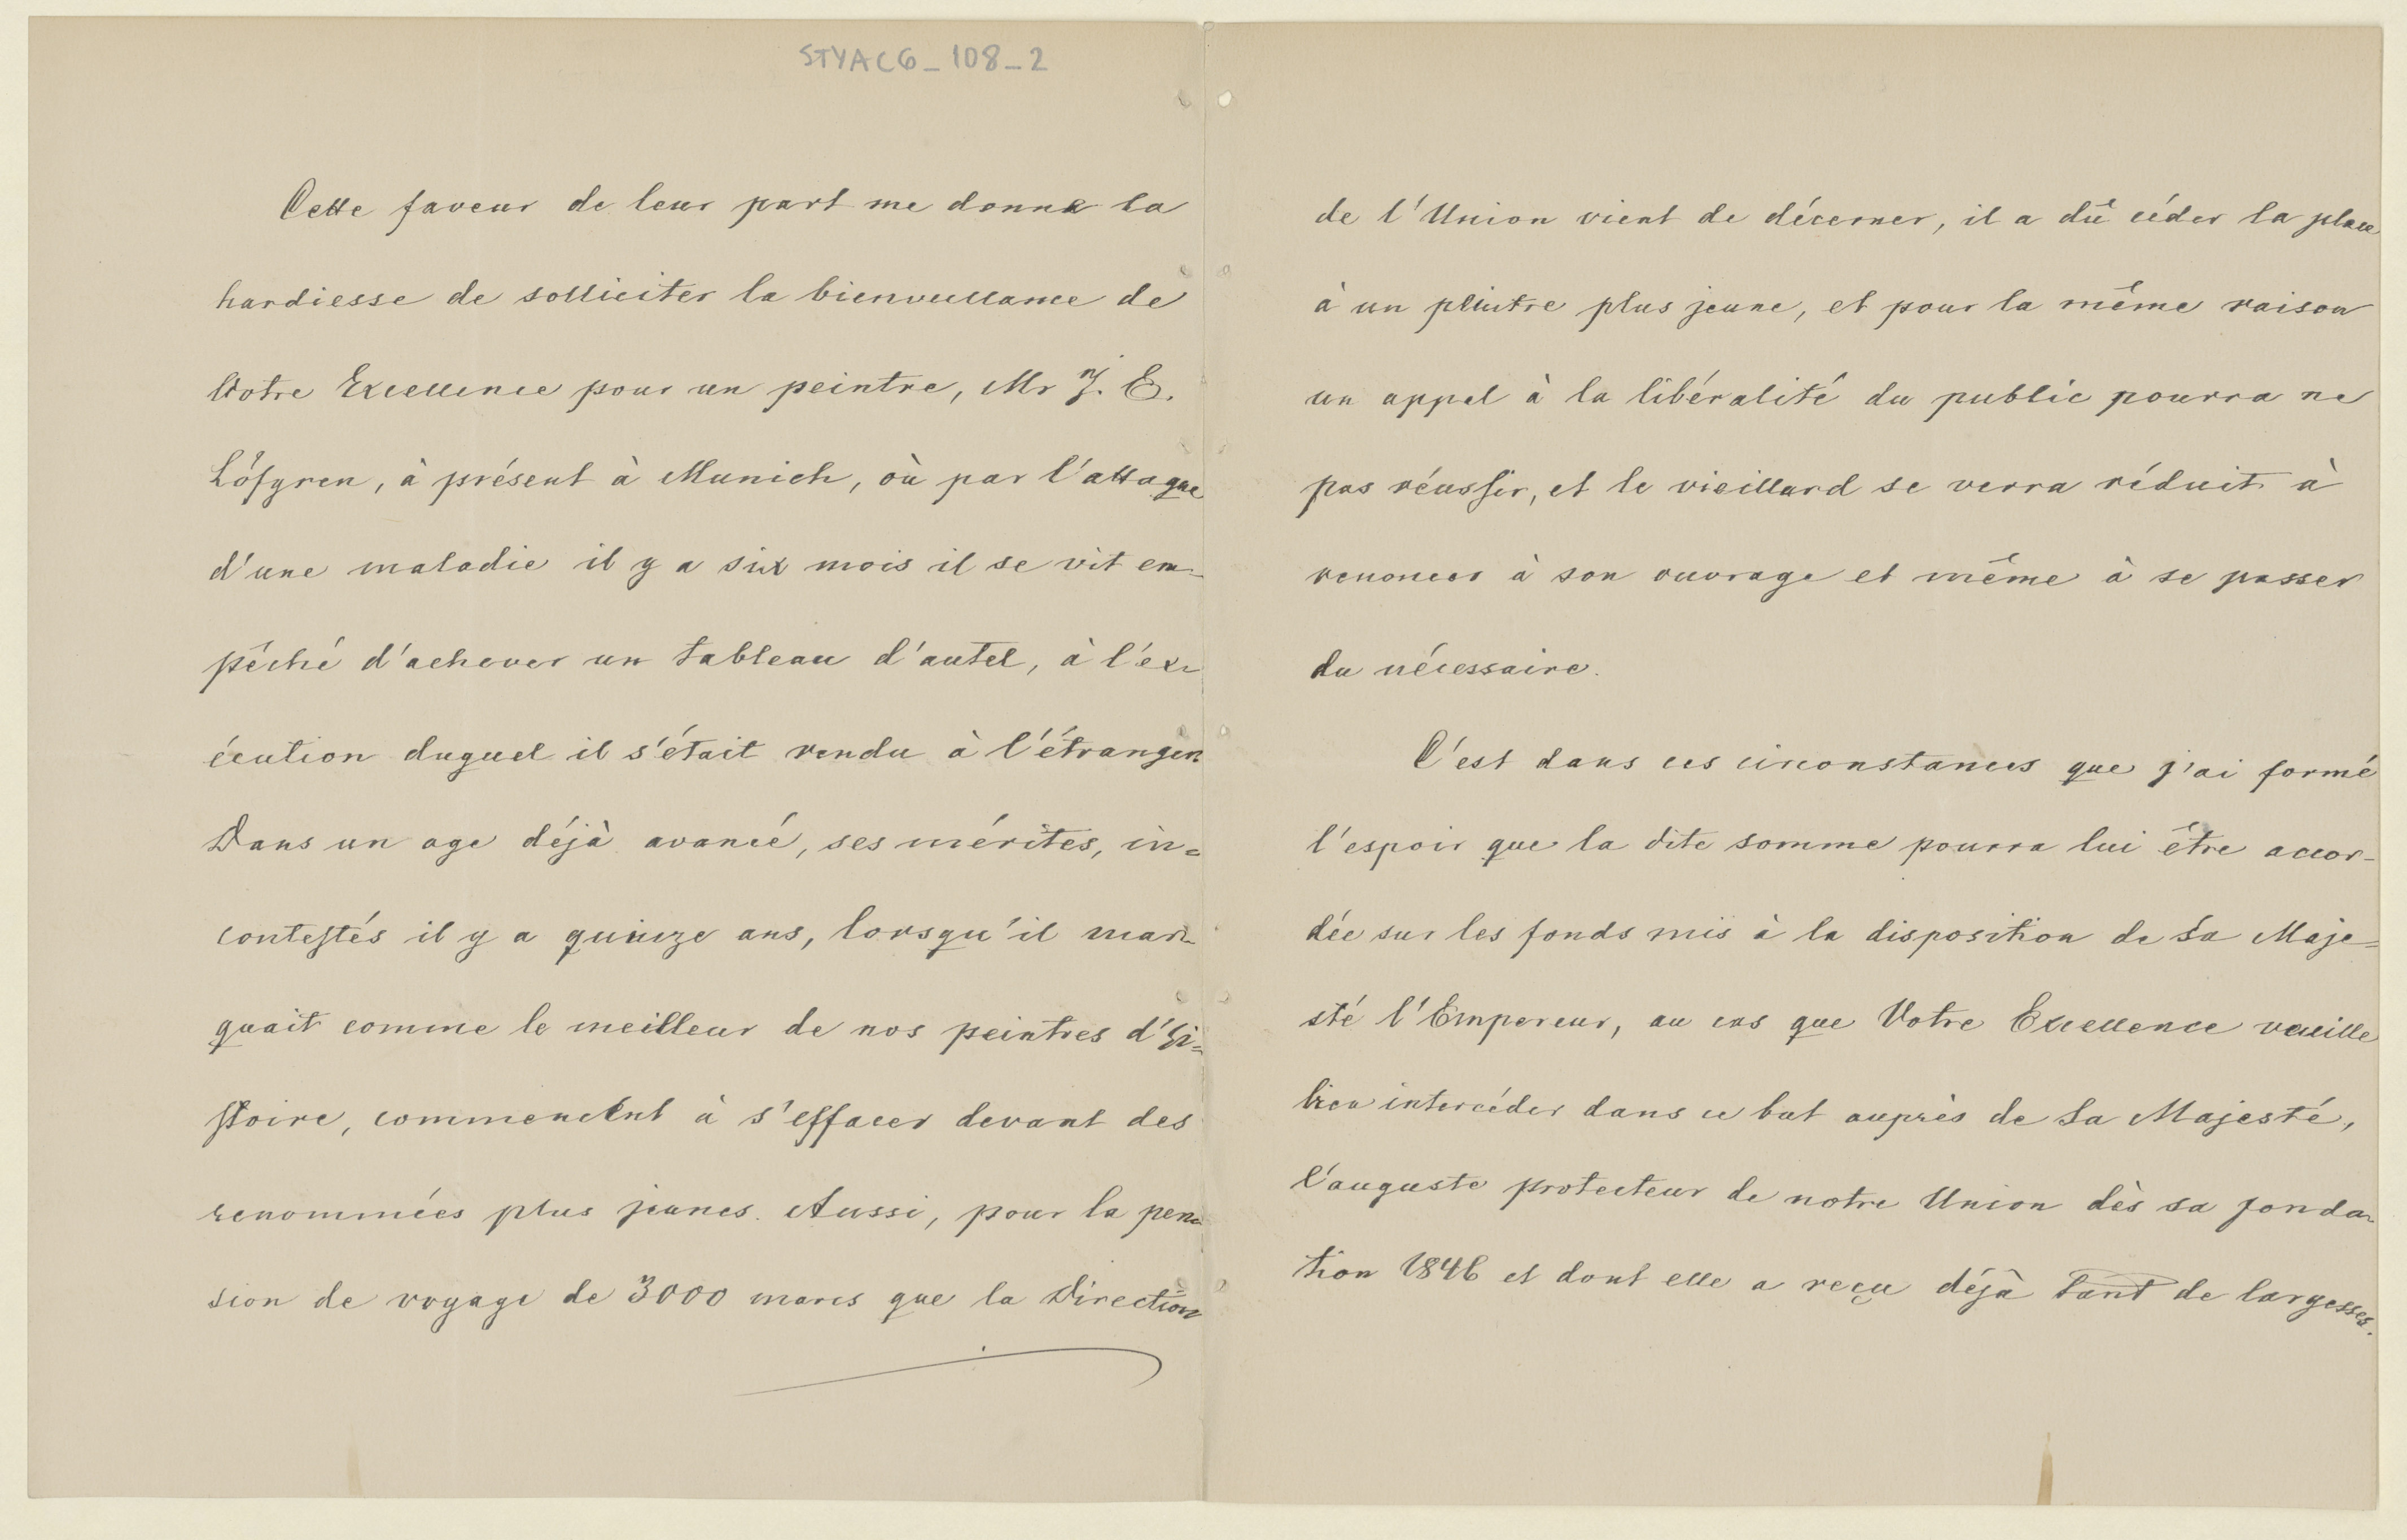 STYAC6_108_2
Cette faveur de leur part me donne la
hardiesse de solliciter la bienveillance de
Votre Excellence pour un peintre, Mr J. E.
Löfgren, à présent à Munich, où par l'attaque
d'une maladie il y a six mois il se vit em-
pêché d'achever un tableau d'autel, à l'ex-
écution duquel il s'était rendu à l'étranger
Dans un age déjà avancé, ses mérites, in=
contestés il y a quinze ans, lorsqu'il mar-
quait comme le meilleur de nos peintres d'hi=
stoire, commencent à s'effacer devant des
renommées plus jeunes. Aussi, pour la pen-
sion de voyage de 3000 marcs que la Direction
de l'Union vient de décerner, il a dû céder la place
à un peintre plus jeune, et pour la même raison
un appel à la libéralité du public pourra ne
pas réussir, et le vieillard se verra réduit à
renoncer à son ouvrage et même à se passer
du nécessaire.
C'est dans ces circonstances que j'ai formé
l'espoir que la dite somme pourra lui être accor-
dée sur les fonds mis à la disposition de Sa Maje=
sté l'Empereur, au cas que Votre Excellence veuille
bien intercéder dans ce but auprès de Sa Majesté,
l'auguste protecteur de notre Union dès sa fonda-
tion 1846 et dont elle a reçu déjà tant de largesses.